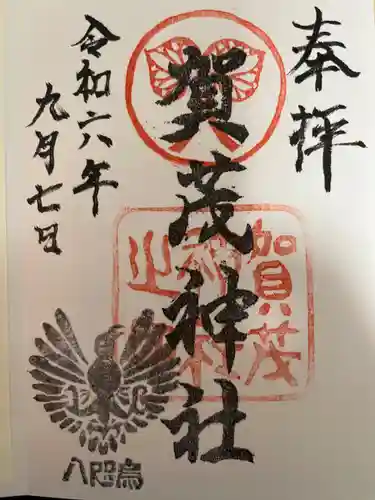 奉拝
賀茂神社
賀茂神社之印
令和六年
九月七日
八咫烏